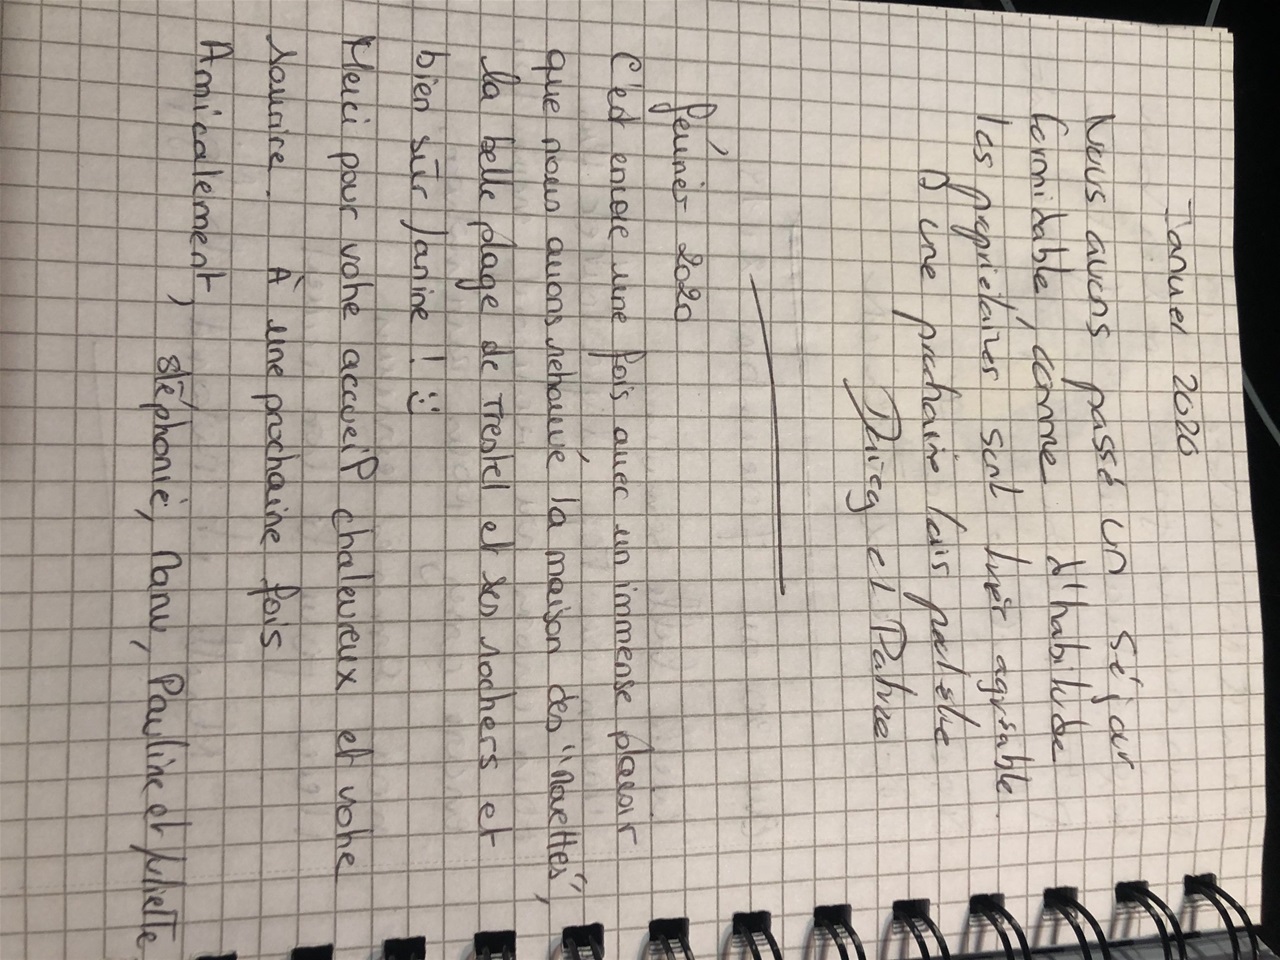 Janvier 2020
Nous avons passé un séjour
formidable, comme d'habitude
les propriétaires sont très agréable.
A une prochaine fois peut être
et Patrice
février 2020
C'est encore une fois avec un immense plaisir
que nous avons retrouvé la maison des "Mouettes",
la belle plage de Trestel et ses rochers et
bien sûr Janine ! :)
Merci pour votre accueil chaleureux et votre
sourire. À une prochaine fois
Amicalement,
stéphanie, Manu, Pauline et Juliette